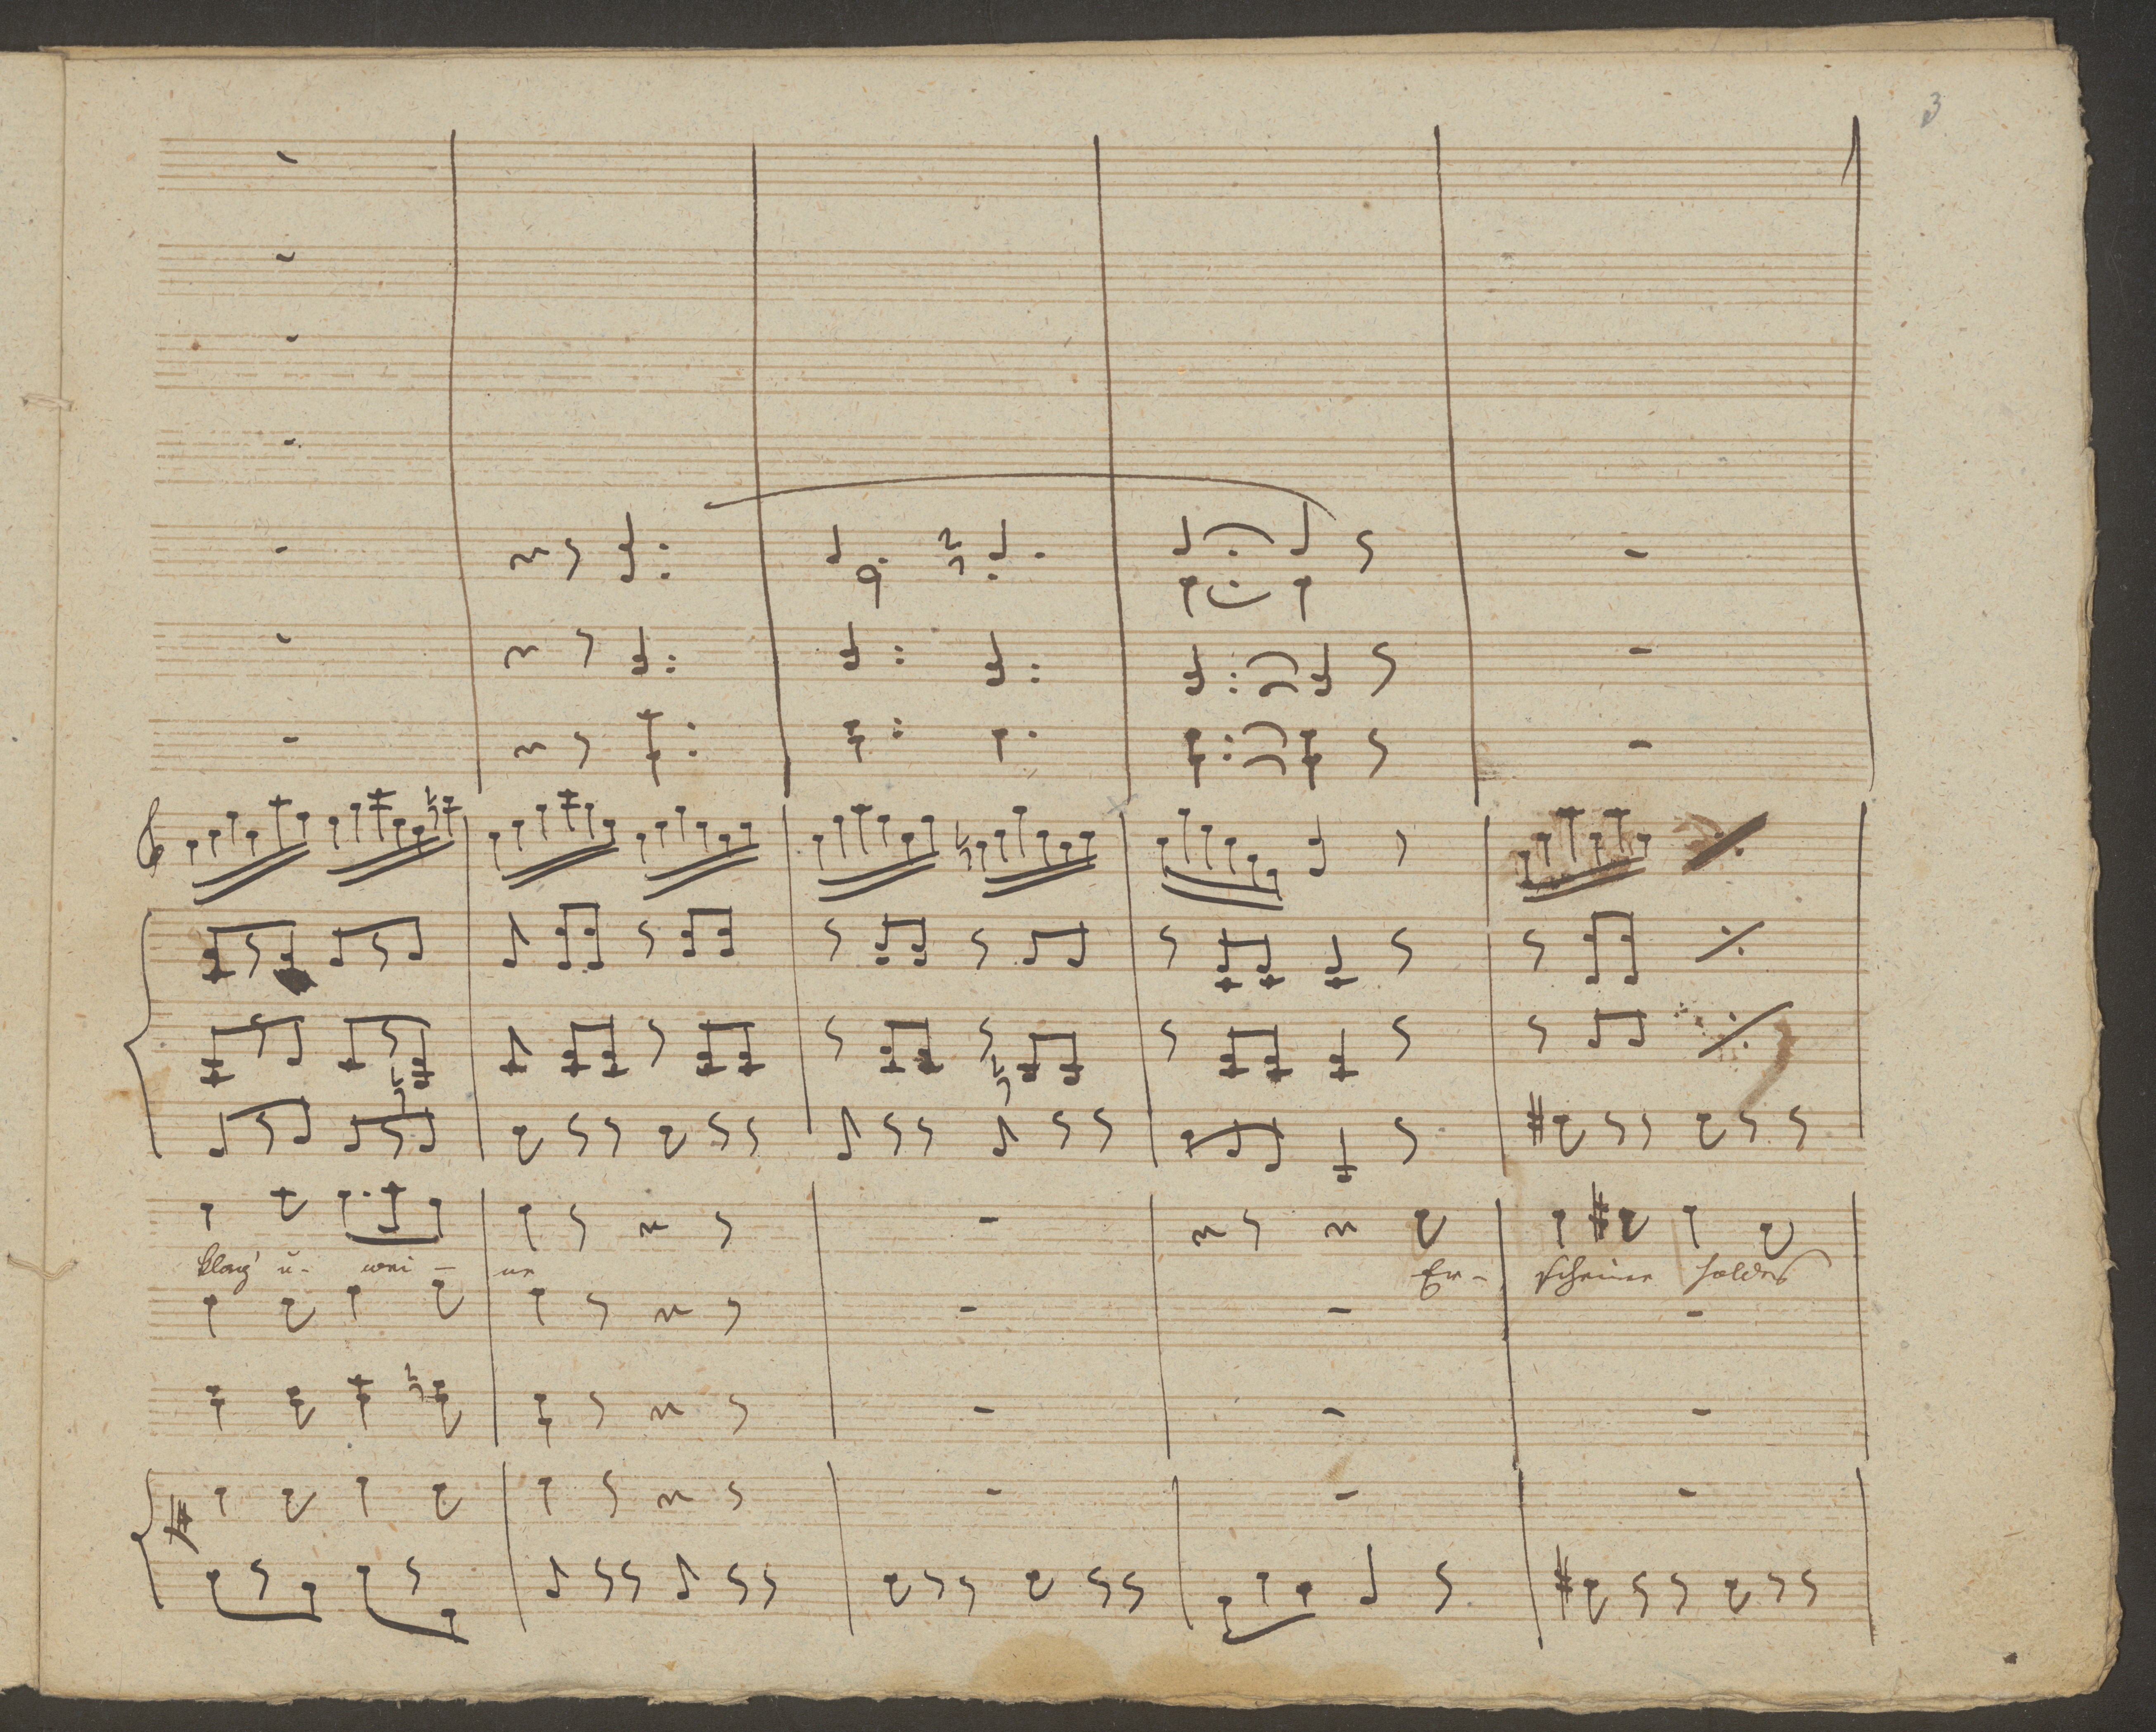 3
klag' u. wei - ne Er - scheine holdes